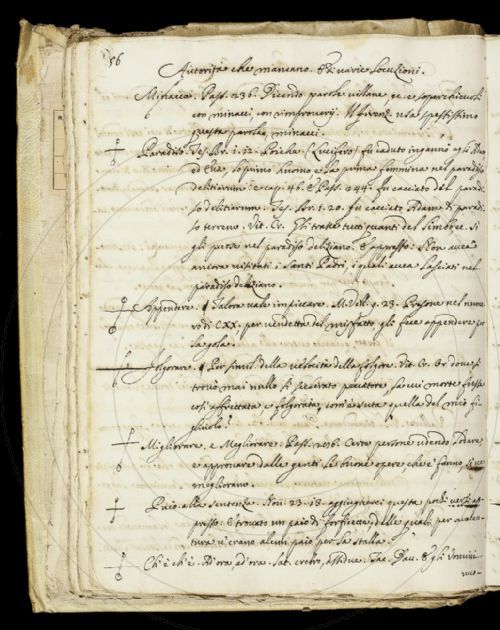 56
Autorità che mancano. E di varie Locuzioni.
Minacce. Pass. 236. Dicendo parole villane, e soperchievoli
con minacci, con rimproverij. Il Firenz. usa spessissimo
questa parola, minacci.
Paradiso. Tes. Br. 1. 12. Poichè (Lucifero) fu caduto ingannò egli
ed Eva, lo primo huomo e la prima femmina nel paradiso
delitiarum: e cap. 46. E Pass. 244. fu cacciato del paradi-
so delitiarum. Tes. Br. 1. 20. fu cacciato Adamo di paradi-
so terreno. Vit. Cr. Gli trasse tutti quanti del Limbo, e si
gli puose nel paradiso deliziano. E appresso: Non avea
ancora visitati i Santi Padri, i quali avea lasciati nel
paradiso deliziano.
Appendere. ¶ Talora vale impiccare. M. Vill. 9. 23. Persone nel nume-
ro di CXX. per vendetta del misfatto gli fece appendere per
la gola.
Folgorare. ¶ Per simil. della velocità della folgore. Vit. Cr. Or dove si
trovò mai nullo sì peccatore, la cui morte fusse
così affrettata e folgorata, com'è suta quella del mio fi-
gliuolo?
Migliorare, e Megliorare. Pass. Certe persone udendo lodare,
e approvare dalle genti le buone opere che e' fanno si ne
megliorano.
Paio. alla sentenza. Nov. 23. 13. aggiugnerei questa
presso: E trovato un paio di forficette, delle quali per avven-
tura v'erano alcun paio per la stalla.
Chi è ch'è. Ad ora, ad ora. Lat. crebro, assidue. Tac. Dav. E gli Uomini